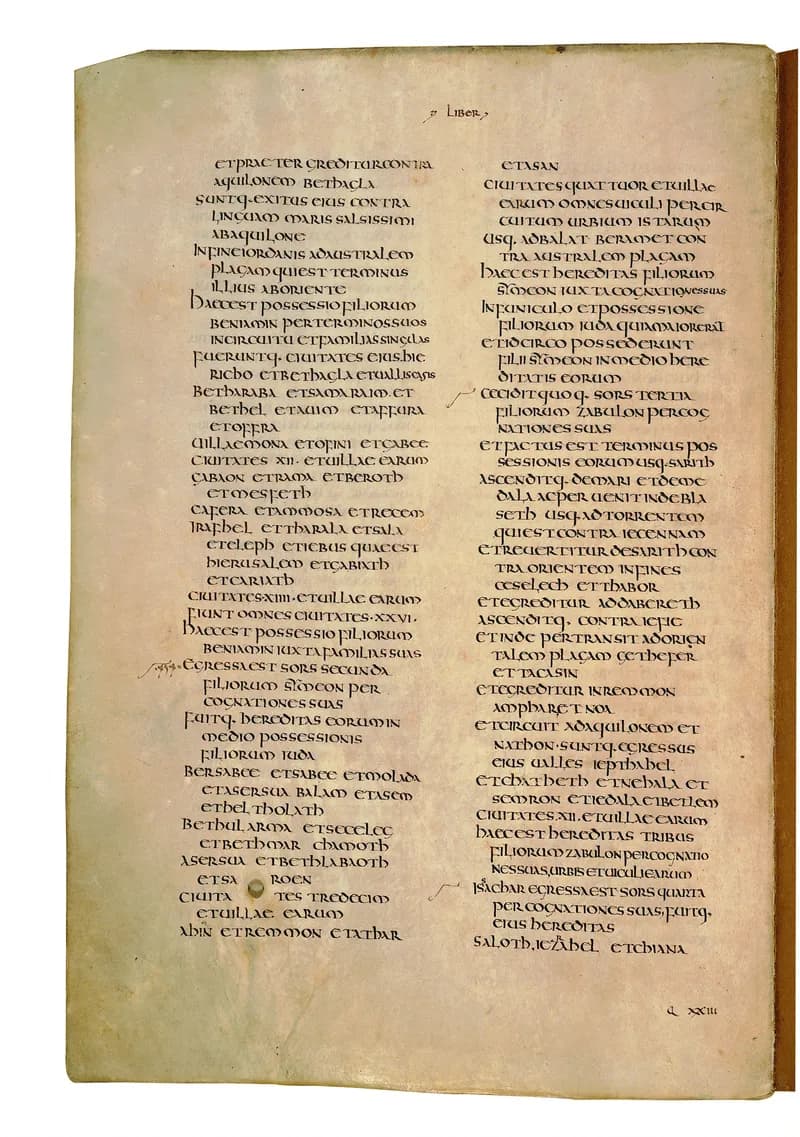 LIBER
ETPRAETER GREDITURCONTRA
AQUILONEM BETHAGLA
SUNTQ·EXITUS EIUS CONTRA
LINGUAM MARIS SALSISSIMI
ABAQUILONE
INFINEIORDANIS ADAUSTRALEM
PLAGAM QUIEST TERMINUS
ILLIUS ABORIENTE
HAECEST POSSESSIO FILIORUM
BENIAMIN PERTERMINOSSUOS
INCIRCUITU ETFAMILIASSINGULAS
FUERUNTQ· CIUITATES EIUS·HIE
RICHO ETBETHAGLA ETUALLISCASIS
BETHARABA ETSAMARAIM·ET
BETHEL ETAUIM ETAFFURA
ETOFFRA
UILLAEMONA ETOFINI ETGABEE
CIUITATES XII·ETUILLAE EARUM
GABAON ETRAMA ETBEROTH
ETMESFETH
CAFERA ETAMMOSA ETRECEM
IRAFHEL ETTHARALA ETSALA
ETELEPH ETIEBUS QUAEEST
HIERUSALEM ETGABIATH
ETCARIATH
CIUITATES·XIIII·ETUILLAE EARUM
FIUNT OMNES CIUITATES·XXVI·
HAECEST POSSESSIO FILIORUM
BENIAMIN IUXTAFAMILIASSUAS
EGRESSAEST SORS SECUNDA
FILIORUM SYMEON PER
COGNATIONES SUAS
FUITQ· HEREDITAS EORUMIN
MEDIO POSSESSIONIS
FILIORUM IUDA
BERSABEE ETSABEE ETMOLADA
ETASERSUA BALAM ETASEM
ETHELTHOLATH
BETHULARMA ETSECELEG
ETBETHMAR CHAMOTH
ASERSUA ETBETHLABAOTH
ETSA ROEN
CIUITA TES TREDECIM
ETUILLAE EARUM
AHIN ETREMMON ETATHAR
ETASAN
CIUITATES QUATTUOR ETUILLAE
EARUM OMNES UICULI PERCIR
CUITUM URBIUM ISTARUM
USQ· ADBALAT BERAMET CON
TRA AUSTRALEM PLAGAM
HAECEST HEREDITAS FILIORUM
SYMEON IUXTACOGNATIONESSUAS
INFUNICULO ETPOSSESSIONE
FILIORUM IUDA QUIAMAIORERAT
ETIDCIRCO POSSEDERUNT
FILII SYMEON INMEDIO HERE
DITATIS EORUM
CECIDITQUOQ· SORS TERTIA
FILIORUM ZABULON PERCOG
NATIONES SUAS
ETFACTUS EST TERMINUS POS
SESSIONIS EORUM USQ·SARITH
ASCENDITQ· DEMARI ETDEME
DALA ACPERUENIT INDEBLA
SETH USQ·ADTORRENTEM
QUIEST CONTRA IECENNAM
ETREUERTITUR DESARITH CON
TRA ORIENTEM INFINES
CESELECH ETTHABOR
ETEGREDITUR ADDABERETH
ASCENDITQ· CONTRA IEFIE
ETINDE PERTRANSIT ADORIEN
TALEM PLAGAM GETHEFER
ETTACASIN
ETEGREDITUR INREMMON
AMPHARET NOA
ETCIRCUIT ADAQUILONEM ET
NATHON·SUNTQ·EGRESSUS
EIUS UALLES IEPTHAHEL
ETCHATHETH ETNEHALA ET
SEMRON ETIEDALA ETBETLEM
CIUITATES·XII·ETUILLAE EARUM
HAECEST HEREDITAS TRIBUS
FILIORUM ZABULON PERCOGNATIO
NESSUAS,URBIS ETUICULIEARUM
ISSACHAR EGRESSAEST SORS QUARTA
PERCOGNATIONES SUAS, FUITQ·
EIUS HEREDITAS
SALOTH,IEZRAHEL ETCHIANA
Q XXIII